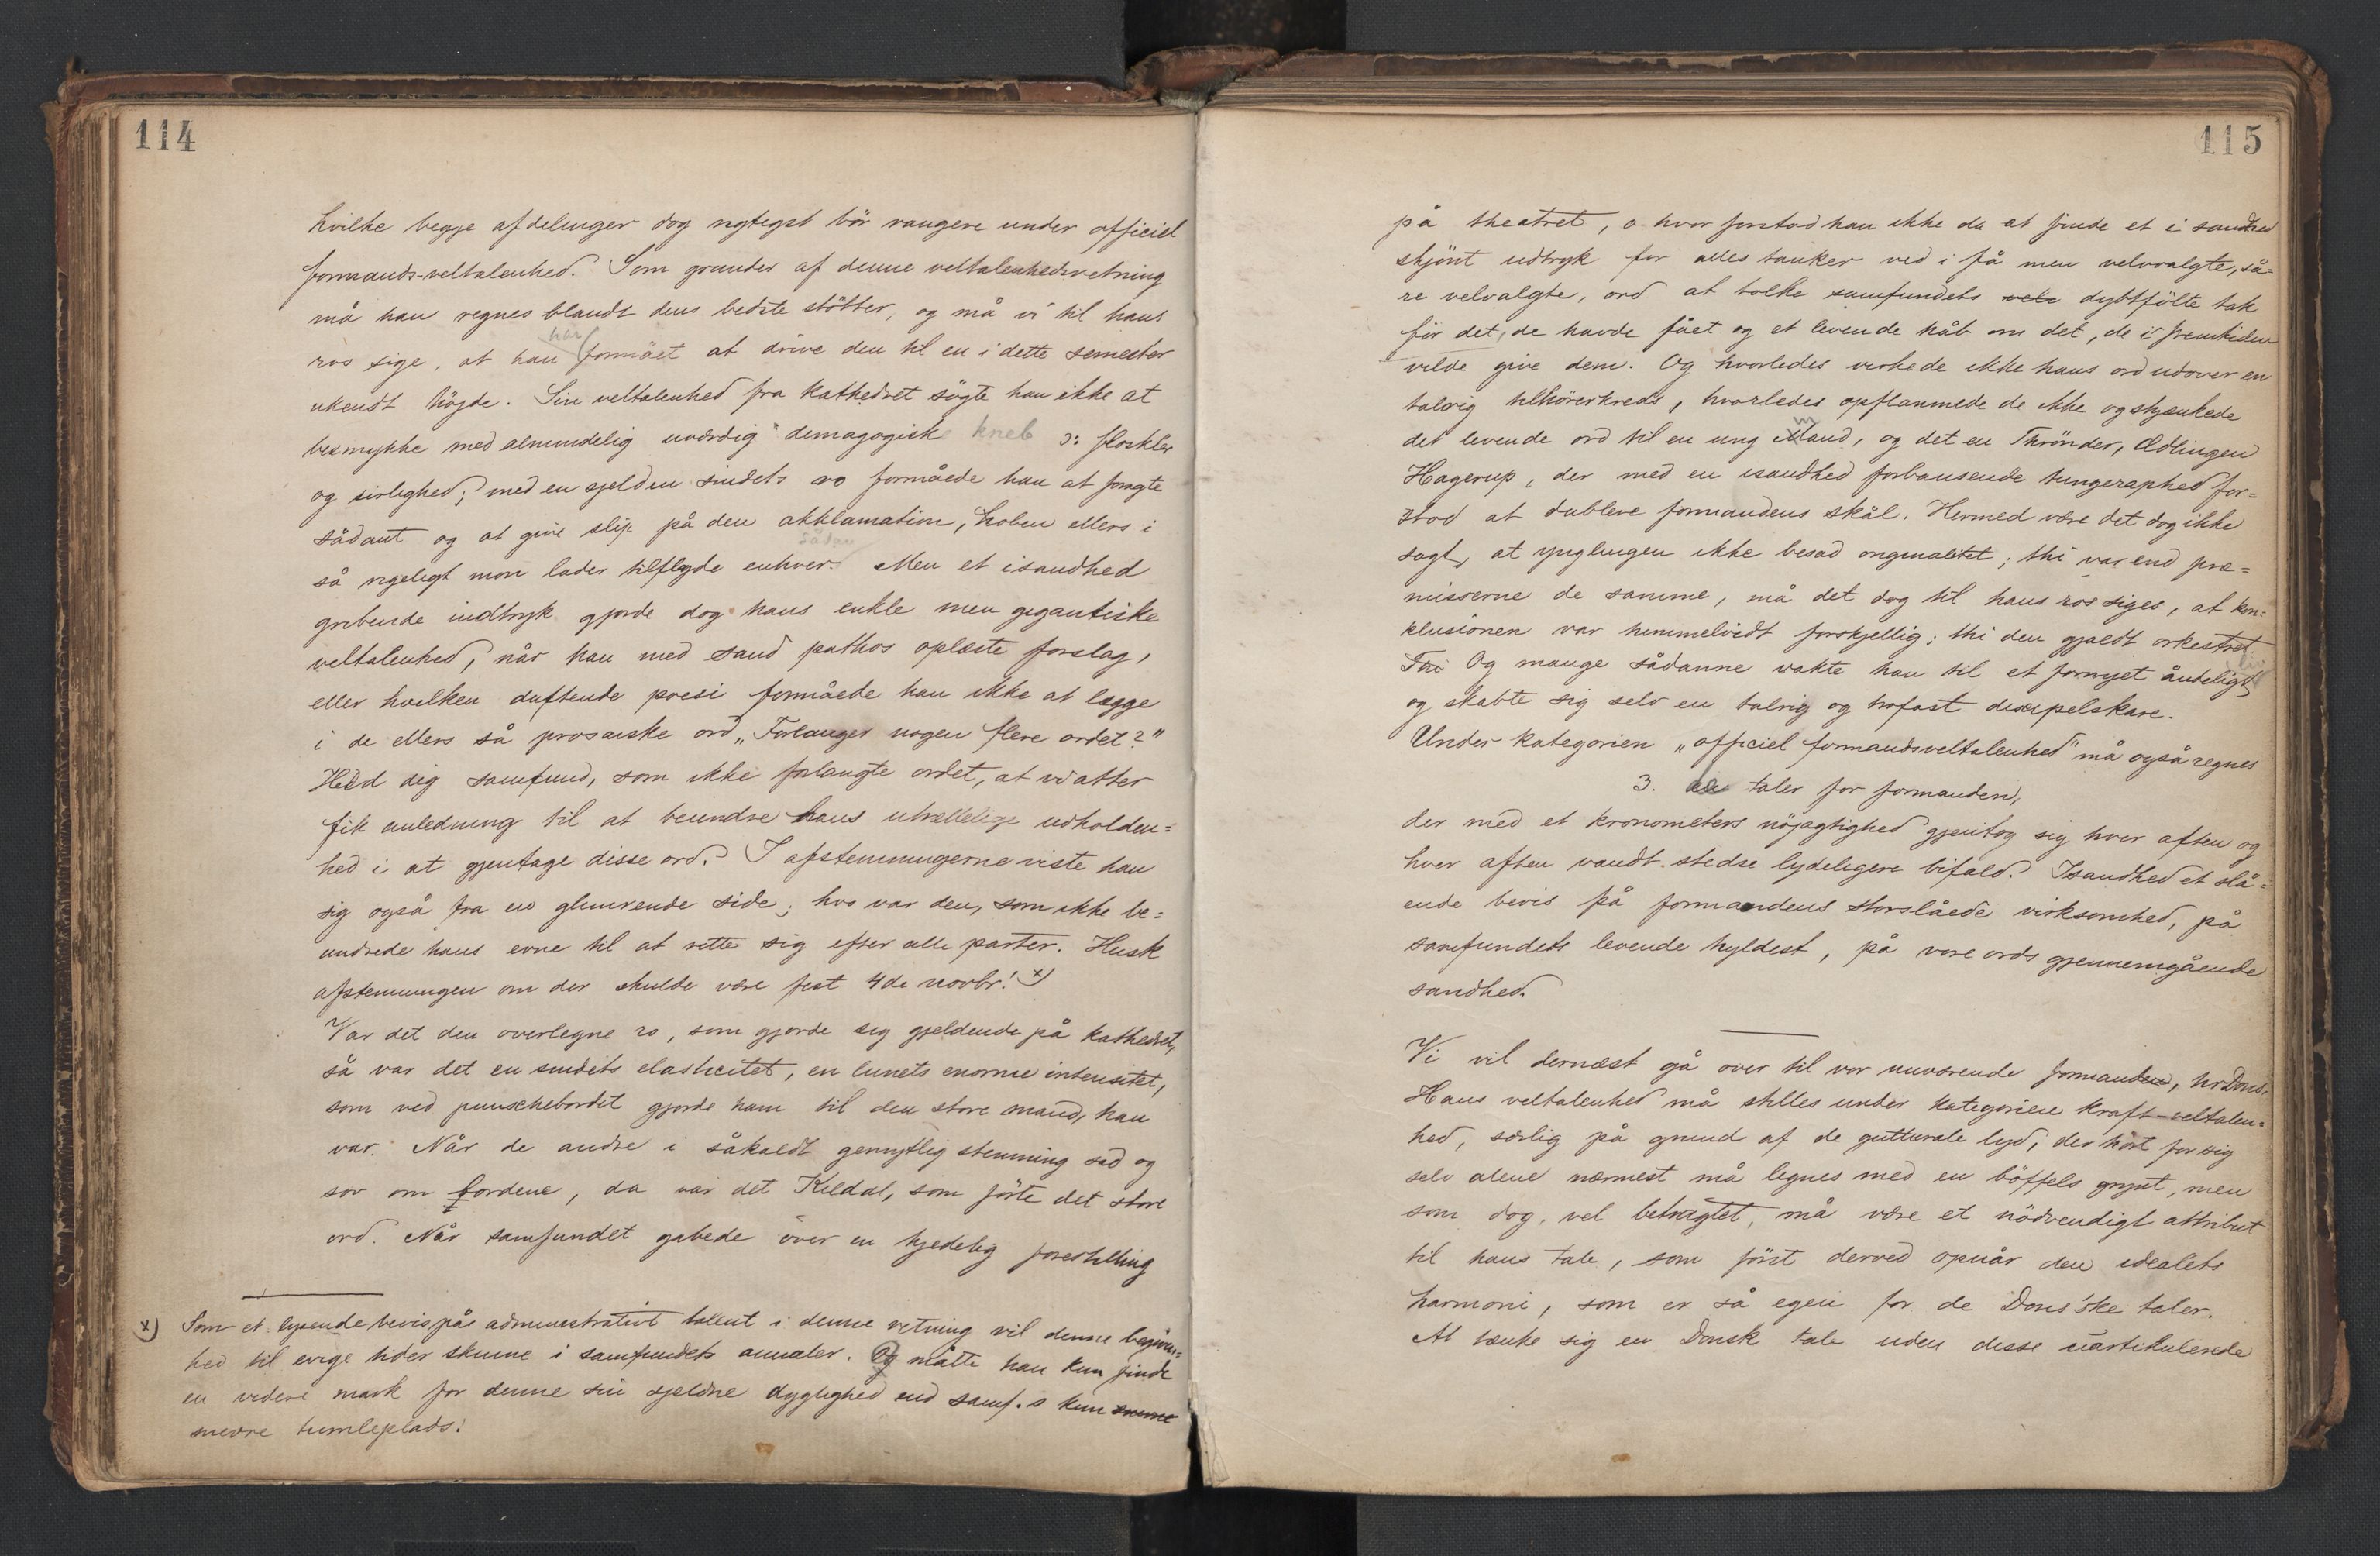 114
hvilke begge afdelinger dog rigtigst bör rangere under officiel
formands-veltalenhed. Som grunder af denne veltalenhedsretning
må han regnes blandt dens bedste stötter, og må vi til hans
har
ros sige, at han formået at drive den til en i dette semester
ukendt höjde. Sin veltalenhed fra kathedret sögte han ikke at
besmykke med almindelig uværdig demagogisk kneb ɔ: floskler
og sirlighed; med en sjelden sindets ro formåede han at foragte
sådant og at give slip på den akklamation, hoben ellers i
sådan
så rigeligt mon lader tilflyde enhver. Men et isandhed
gribende indtryk gjorde dog hans enkle men gigantiske
veltalenhed, når han med sand pathos oplæste forslag,
eller hvilken duftende poesi formåede han ikke at lægge
i de ellers så prosaiske ord „Forlanger nogen flere ordet?"
Held dig samfund, som ikke forlangte ordet, at vi atter
fik anledning til at beundre hans utrættelige udholden=
hed i at gjentage disse ord. I afstemningerne viste han
sig også fra en glimrende side; hvo var den, som ikke be=
undrede hans evne til at rette sig efter alle parter. Husk
afstemningen om der skulde være fest 4de novbr! x)
Var det den overlegne ro, som gjorde sig gjeldende på kathedret,
så var det en sindets elasticitet, en lunets enorme intensitet,
som ved punschebordet gjorde ham til den store mand, han
var. Når de andre i såkaldt gemytlig stemning sad og
sov om bordene, da var det Kildal, som förte det store
ord. Når samfundet gabede över en kjedelig forestilling
x) Som et lysende bevis på administrativt talent i denne retning vil denne begiven=
hed til evige tider skinne i samfundets annaler. Og måtte han kun finde
en videre mark for denne sin sjeldne dyglighed end samf.s kun
snevre tumleplads.
115
på theatret, o hvor forstod han ikke da at finde et i sandhed
skjönt udtryk for alles tanker ved i få men velvalgte, så=
re velvalgte, ord at tolke samfundets vele dybtfölte tak
för det, de havde fået og et levende håb om det, de i fremtiden
vilde give dem. Og hvorledes virkede ikke hans ord udover en
talrig tilhörerkreds, hvorledes opflammede de ikke og skjænkede
det levende ord til en ung Mand, og det en Thrönder, Ædlingen
Hagerup, der med en isandhed forbausende tungeraphed for=
stod at dublere formandens skål. Hermed være det dog ikke
sagt, at ynglingen ikke besad originalitet; thi var end præ=
misserne de samme, må det dog til hans ros siges, at kon=
klusionen var himmelvidt forskjellig; thi den gjaldt orkestret.
liv
Thi Og mange sådanne vakte han til et fornyet åndeligt
og skabte sig selv en talrig og trofast disæpelskare.
Under kategorien „officiel formandsveltalenhed" må også regnes
3. taler for formanden,
der med et kronometers nöjagtighed gjentog sig hver aften og
hver aften vandt stedse lydeligere bifald. Isandhed et slå=
ende bevis på formandens storslåede virksomhed, på
samfundets levende hyldest, på vore ords gjennemgående
sandhed.
Vi vil dernæst gå over til vor nuværende formanden, hr Dons.
Hans veltalenhed må stilles under kategorien kraft-veltalen=
hed, særlig på grund af de gutturale lyd, der hört for sig
selv alene nærmest må lignes med en böffels grynt, men
som dog, vel betragtet, må være et nödvendigt attribut
til hans tale, som först derved opnår den idealets
harmoni, som er så egen for de Dons'ske taler.
At tænke sig en Donsk tale uden disse uartikulerede